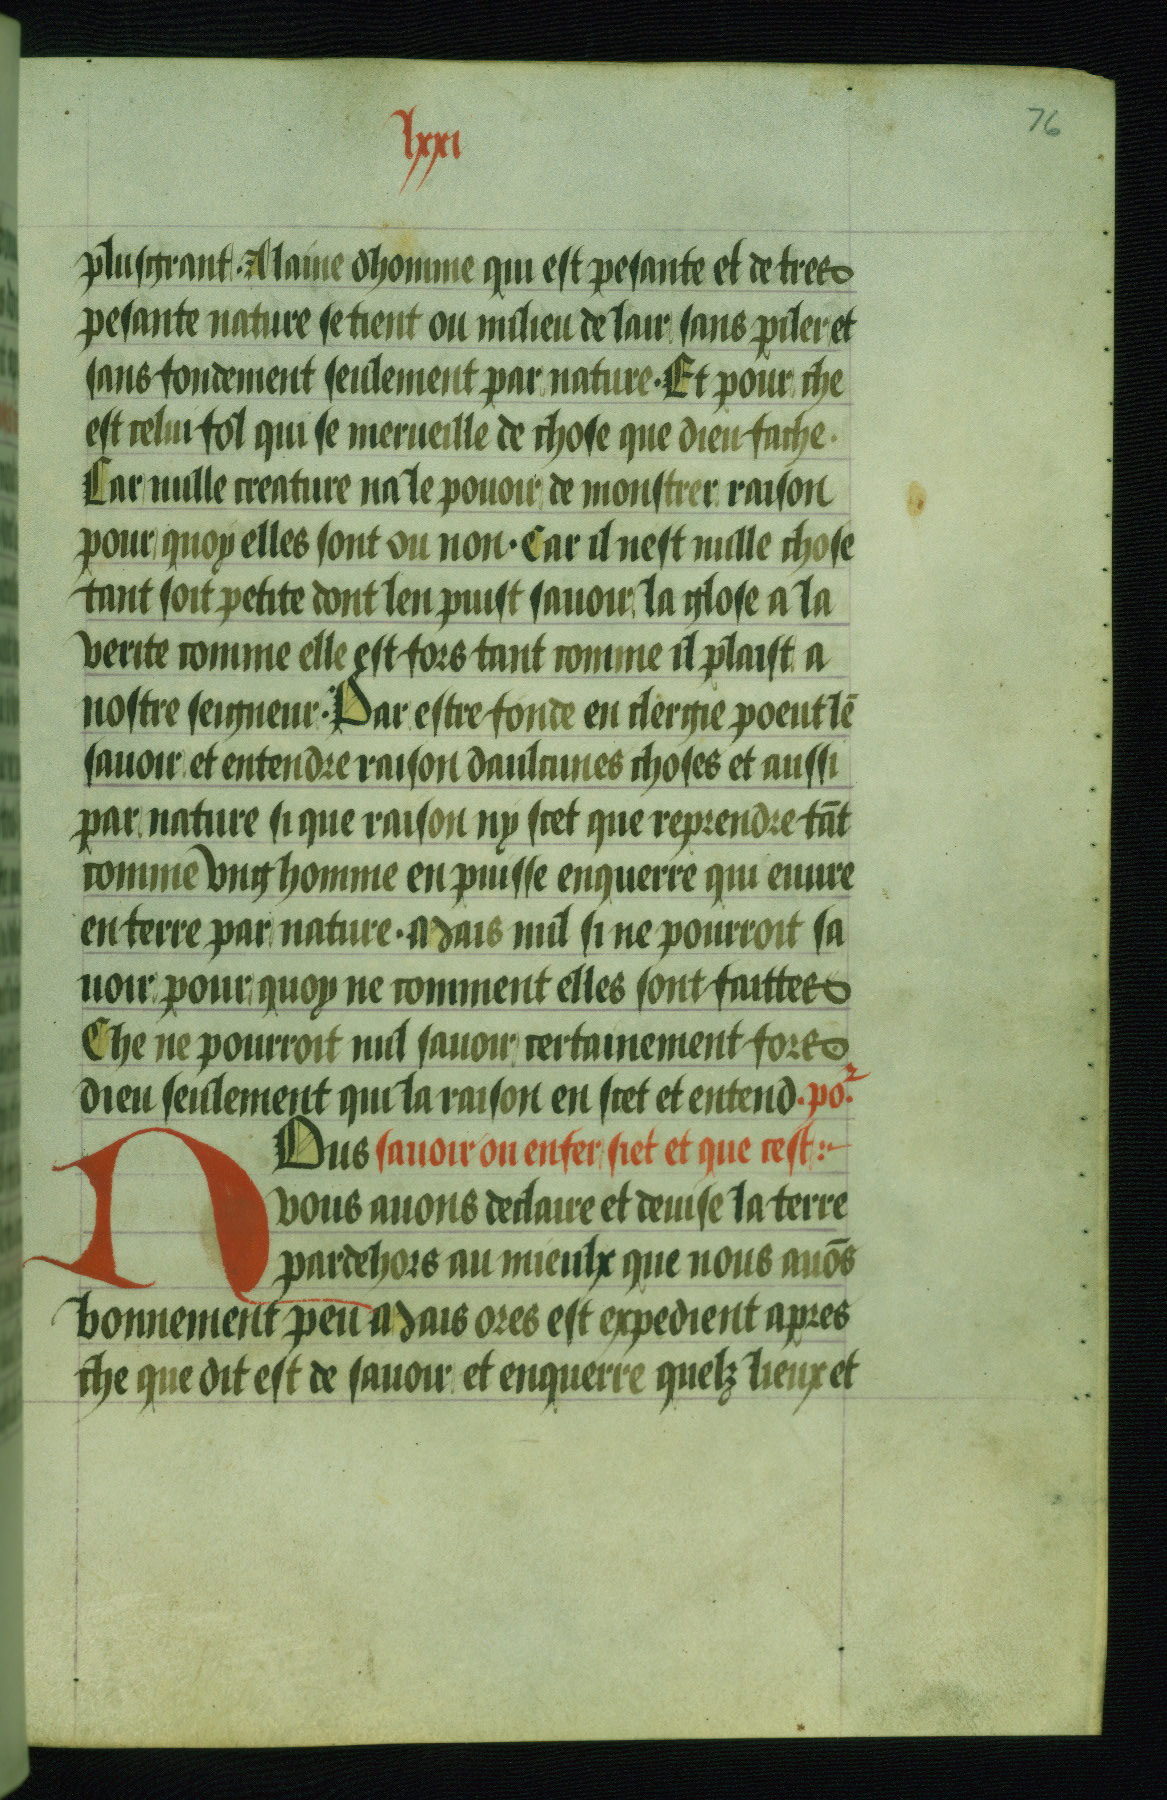 lxxi
76
plusgrant · Alaine dhomme qui est pesante et de tres
pesante nature se tient ou milieu de lair sans piler et
sans fondement seulement par nature · Et pour che
est celui fol qui se merueille de chose que dieu fache ·
Car nulle creature na le pouoir de monstrer raison
pour quoy elles sont ou non · Car il nest nulle chose
tant soit petite dont len puist sauoir la glose a la
verite comme elle est fors tant comme il plaist a
nostre seigneur · Par estre fonde en clergie poeut lē
sauoir et entendre raison daulcunes choses et aussi
par nature si que raison ny scet que reprendre tāt
comme vng homme en puisse enquerre qui euure
en terre par nature · Mais nul si ne pourroit sa
uoir pour quoy ne comment elles sont faittes
Che ne pourroit nul sauoir certainement fors
dieu seulement qui la raison en scet et entend · po²·
NOus sauoir ou enfer siet et que cest :~
vous auons declaire et deuise la terre
pardehors au mieulx que nous auōs
bonnement peu Mais ores est expedient apres
che que dit est de sauoir et enquerre quelz lieux et